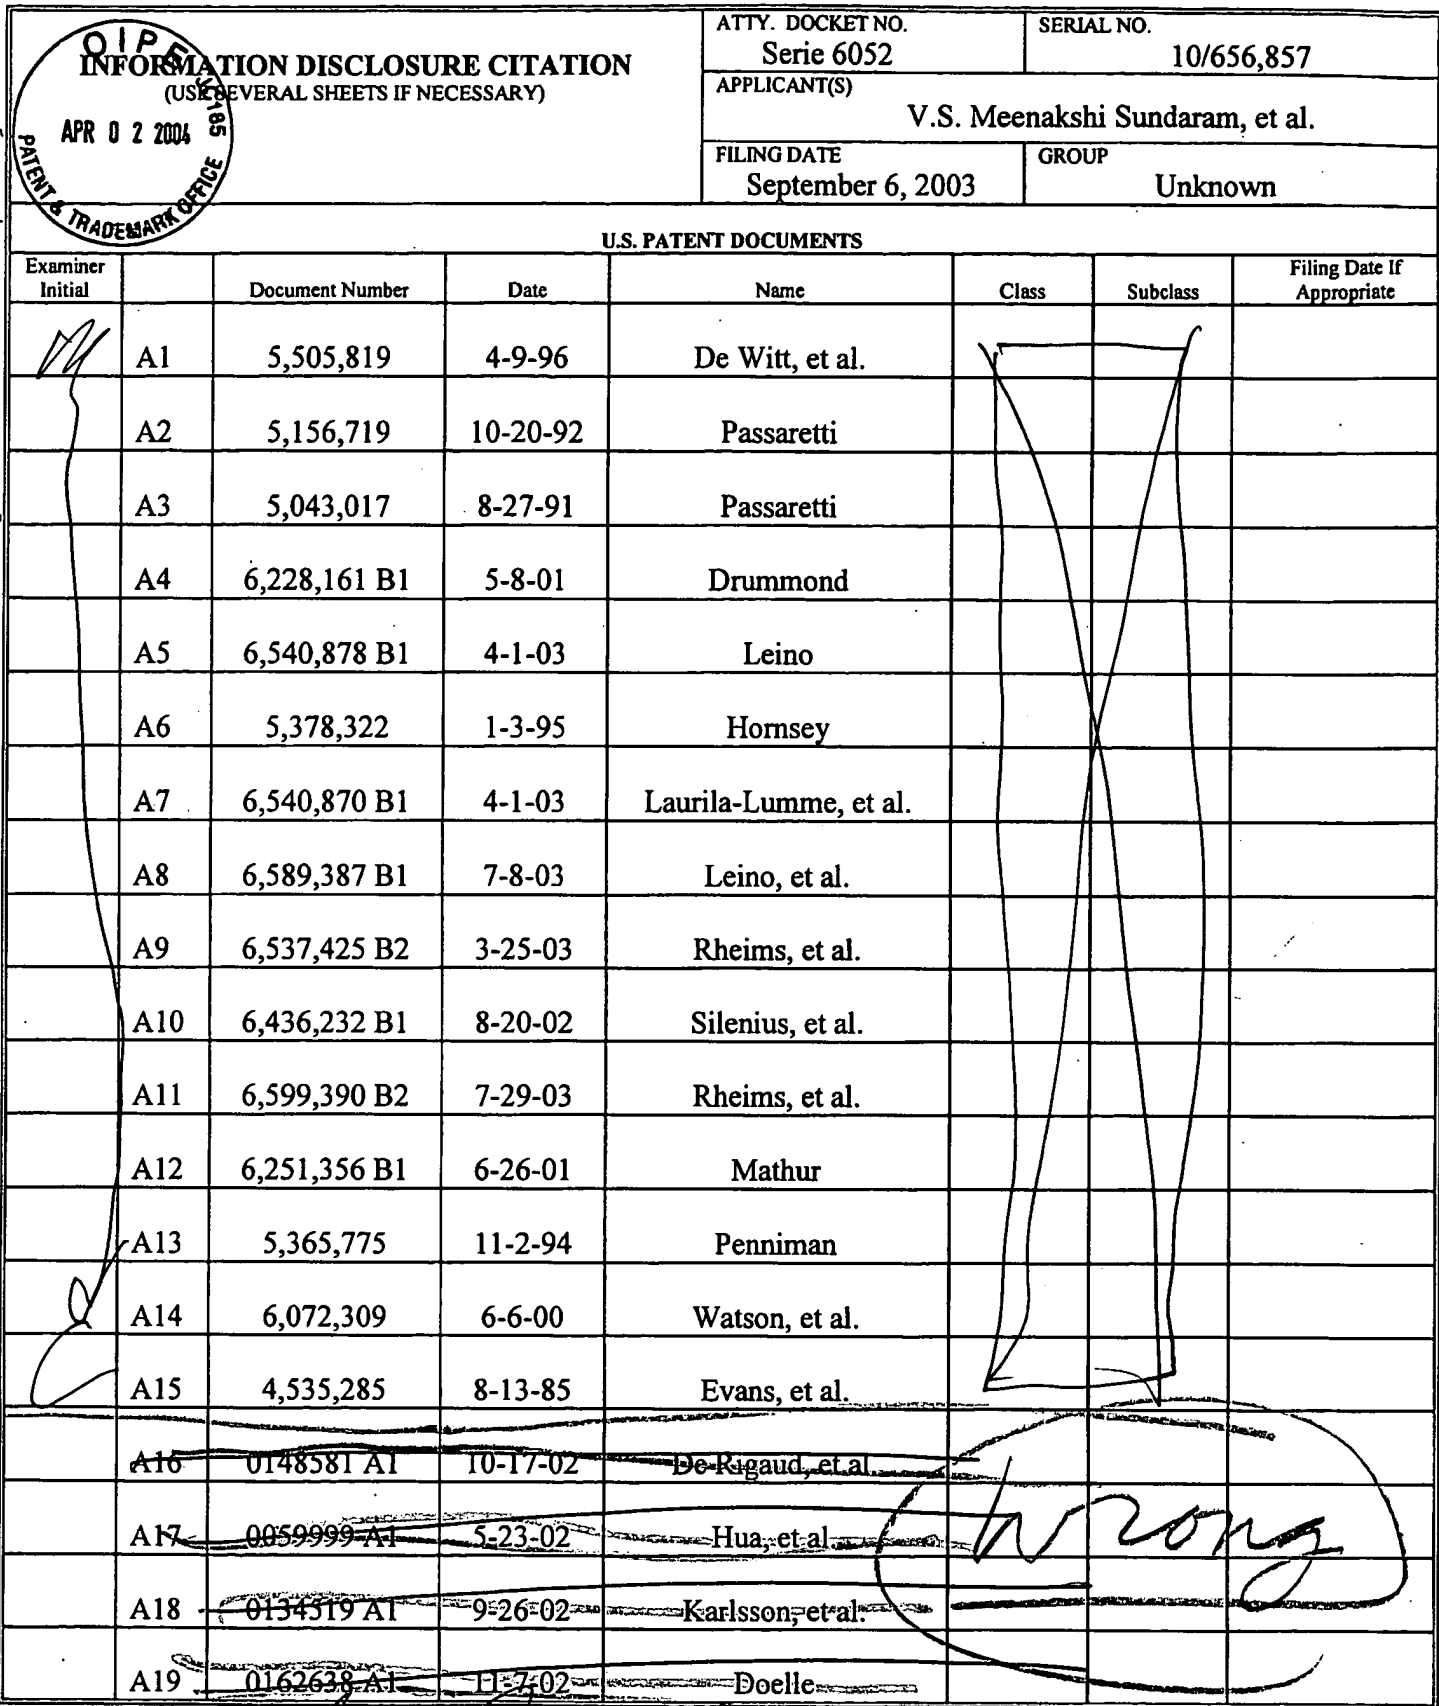 OIPE JC185
APR 02 2004
PATENT & TRADEMARK OFFICE
INFORMATION DISCLOSURE CITATION
(USE SEVERAL SHEETS IF NECESSARY)
ATTY. DOCKET NO.
Serie 6052
SERIAL NO.
10/656,857
APPLICANT(S)
V.S. Meenakshi Sundaram, et al.
FILING DATE
September 6, 2003
GROUP
Unknown
U.S. PATENT DOCUMENTS
Examiner Initial Document Number Date Name Class Subclass Filing Date If Appropriate
A1 5,505,819 4-9-96 De Witt, et al.
A2 5,156,719 10-20-92 Passaretti
A3 5,043,017 8-27-91 Passaretti
A4 6,228,161 B1 5-8-01 Drummond
A5 6,540,878 B1 4-1-03 Leino
A6 5,378,322 1-3-95 Hornsey
A7 6,540,870 B1 4-1-03 Laurila-Lumme, et al.
A8 6,589,387 B1 7-8-03 Leino, et al.
A9 6,537,425 B2 3-25-03 Rheims, et al.
A10 6,436,232 B1 8-20-02 Silenius, et al.
A11 6,599,390 B2 7-29-03 Rheims, et al.
A12 6,251,356 B1 6-26-01 Mathur
A13 5,365,775 11-2-94 Penniman
A14 6,072,309 6-6-00 Watson, et al.
A15 4,535,285 8-13-85 Evans, et al.
A16 0148581 A1 10-17-02 De Rigaud, et al.
A17 0059999 A1 5-23-02 Hua, et al.
Wrong
A18 0134519 A1 9-26-02 Karlsson, et al.
A19 0162638 A1 11-7-02 Doelle